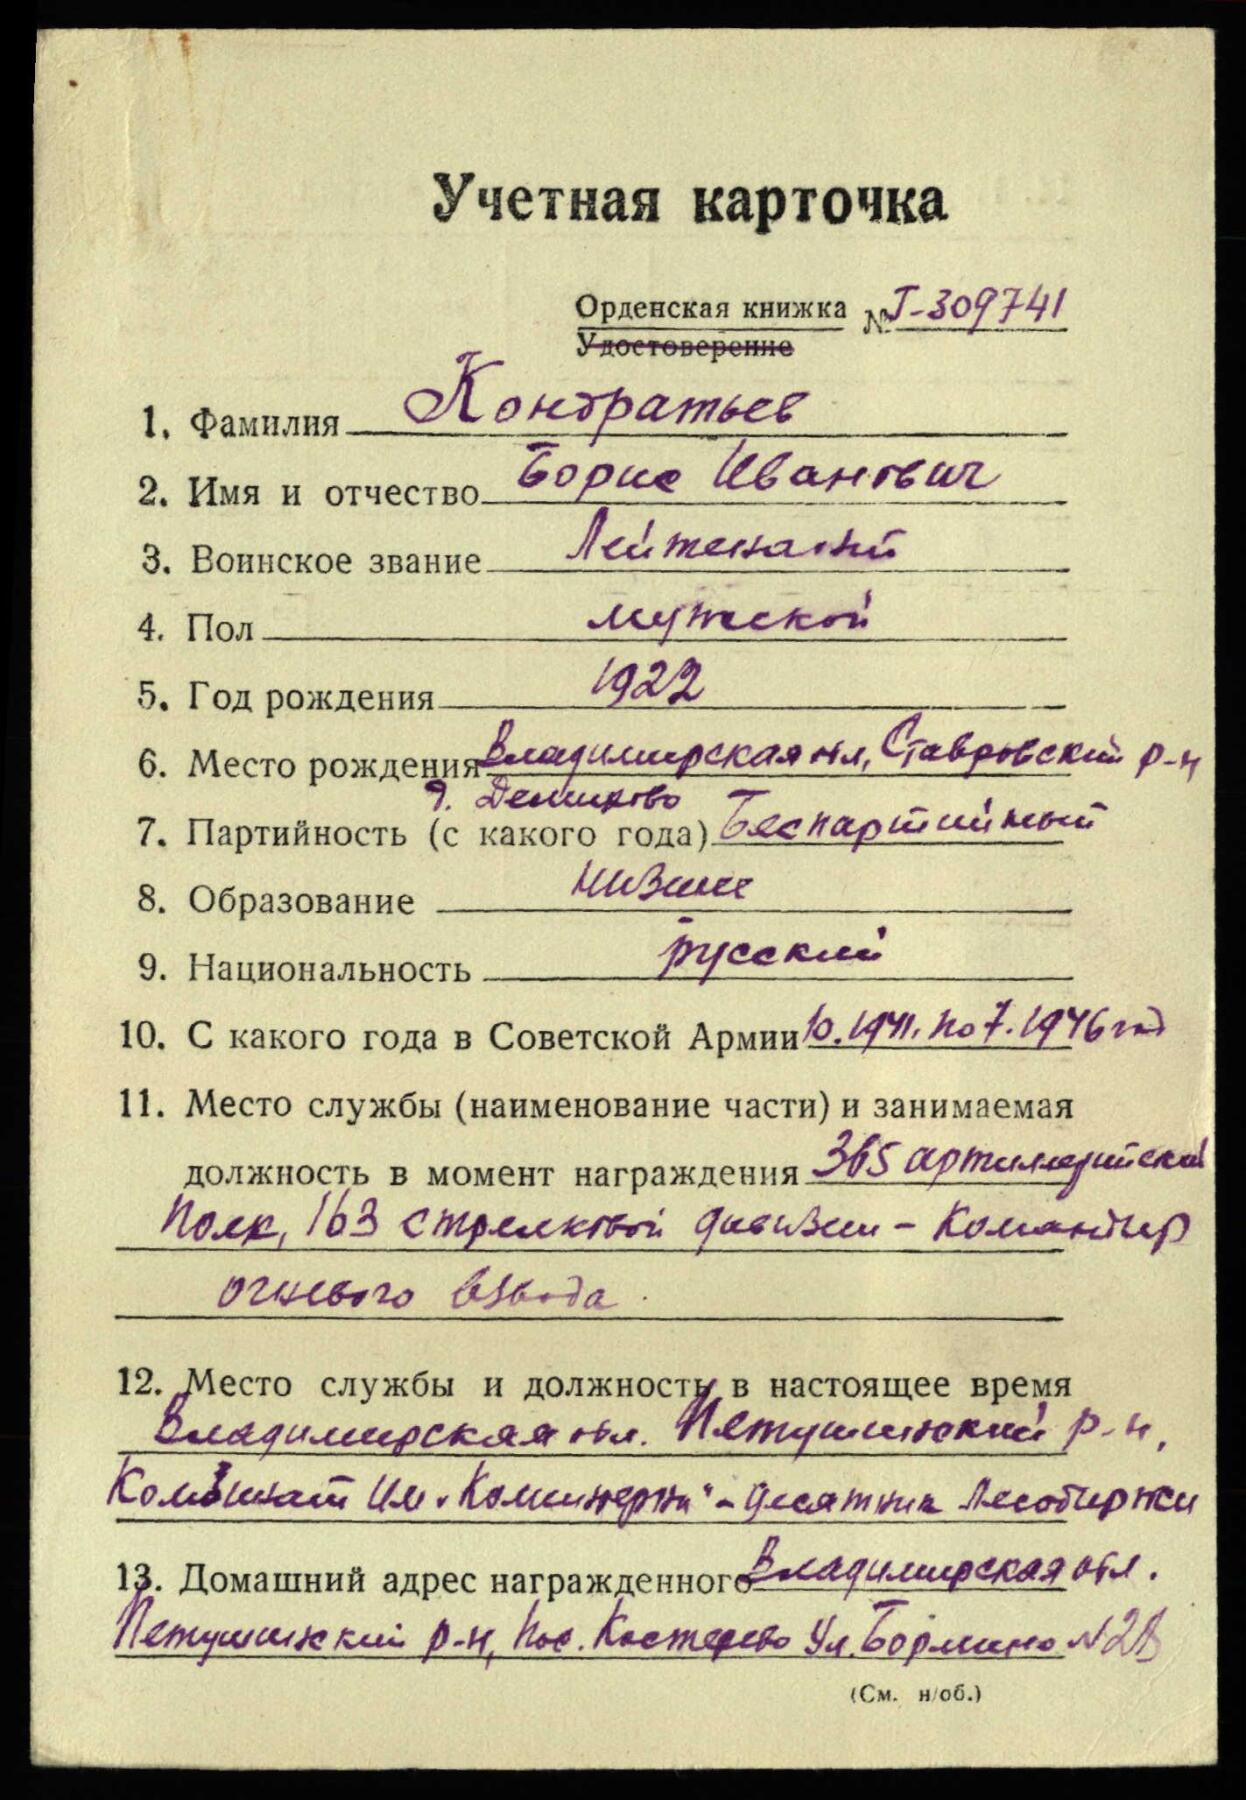 Учетная карточка
Орденская книжка № Г-309741
Удостоверение
1. Фамилия Кондратьев
2. Имя и отчество Борис Иванович
3. Воинское звание Лейтенант
4. Пол мужской
5. Год рождения 1922
6. Место рождения Владимирская обл, Ставровский р-н
д. Демихово
7. Партийность (с какого года) Беспартийный
8. Образование низшее
9. Национальность русский
10. С какого года в Советской Армии 10.1941. по 7.1946 год
11. Место службы (наименование части) и занимаемая
должность в момент награждения 365 артиллерийский
полк, 163 стрелковой дивизии - командир
огневого взвода
12. Место службы и должность в настоящее время
Владимирская обл. Петушинский р-н,
Комбинат им "Коминтерна" - десятник Лесобиржи
13. Домашний адрес награжденного Владимирская обл.
Петушинский р-н, пос. Костерево ул. №
(См. н/об.)